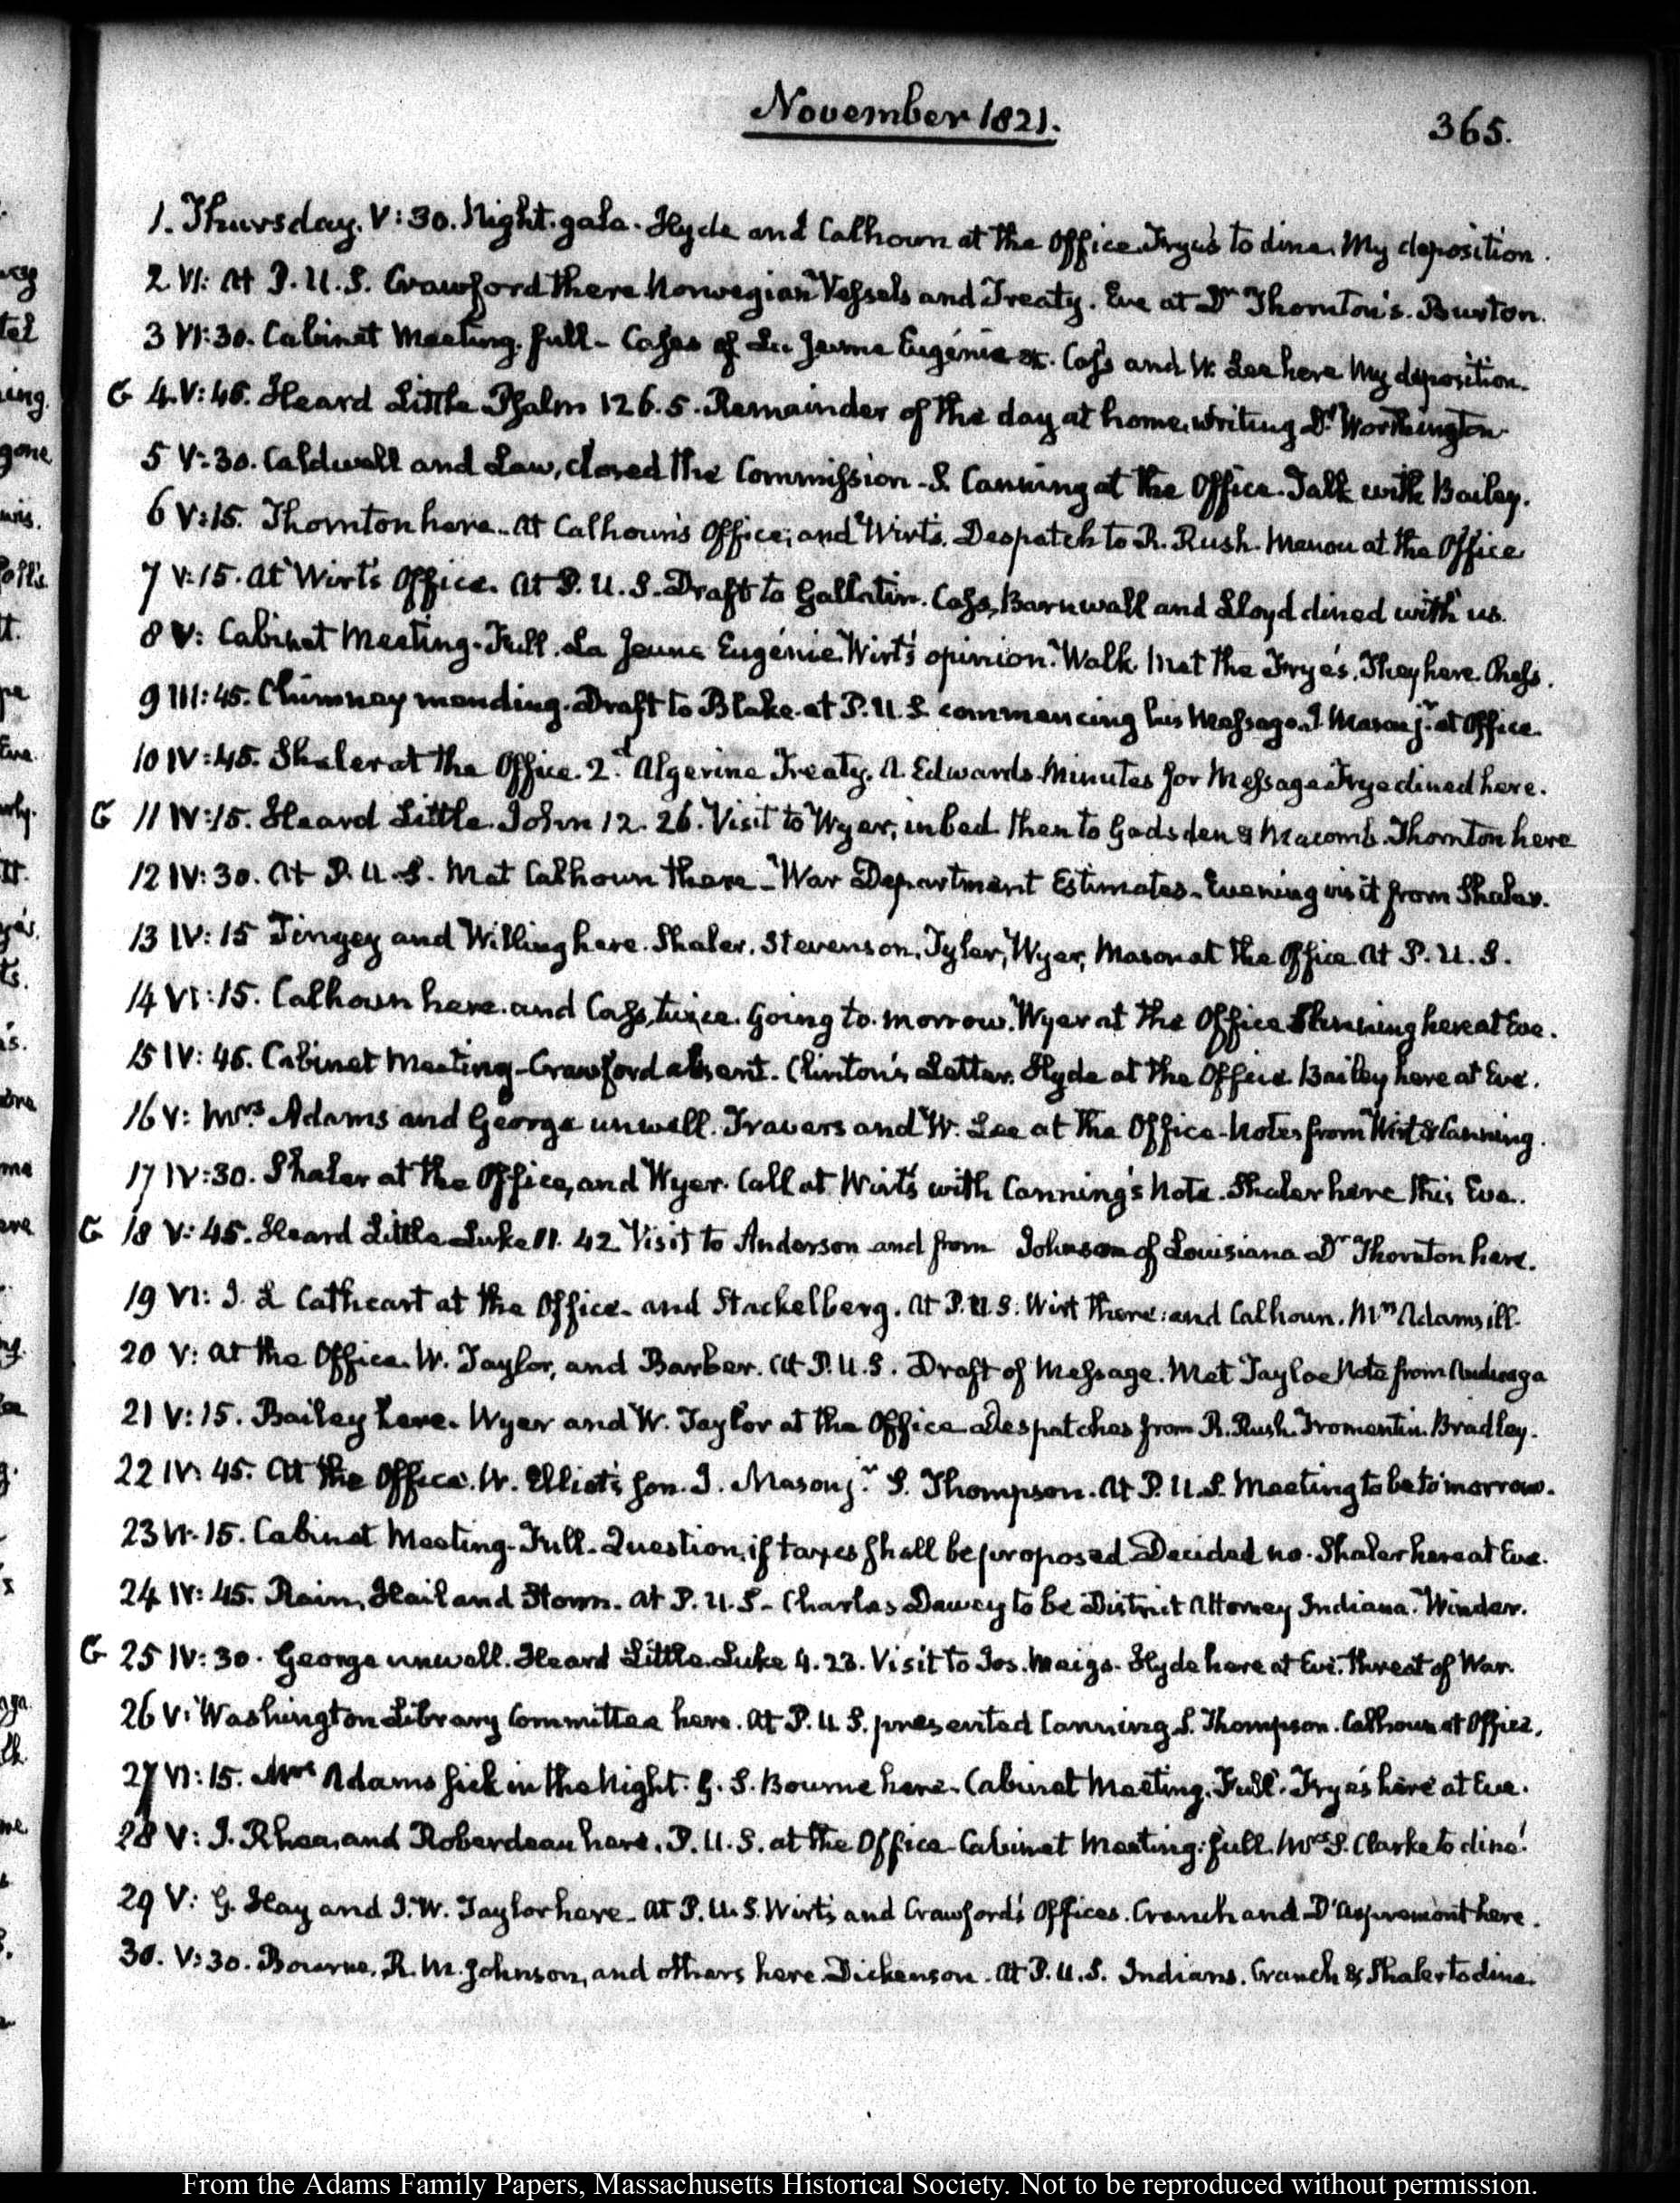 November 1821.
365.
1. Thursday. V:30. Night. gala. Hyde and Calhoun at the Office Frye's to dine. My deposition.
2 VI: At P.U.S. Crawford there Norwegian Vessels and Treaty. Eve at Dr Thornton's. Burton.
3 VI:30. Cabinet Meeting. full- Cases of La Jeune Eugénie &c. Cass and W. Lee here My deposition.
G 4. V:45. Heard Little Psalm 126.5. Remainder of the day at home, writing Dr Worthington
5 V:30. Caldwell and Law, closed the Commission- S. Canning at the Office. Talk with Bailey.
6 V:15. Thornton here. At Calhoun's Office; and Wirt's. Despatch to R. Rush. Menou at the Office
7 V:15. At Wirt's Office. At P.U.S. Draft to Gallatin. Cass, Barnwall and Lloyd dined with us.
8 V: Cabinet Meeting. Full. La Jeune Eugénie. Wirt's opinion. Walk. Met the Frye's. They here. Chess.
9 III:45. Chimney mending. Draft to Blake. at P.U.S. commencing his Message. J. Mason jr. at Office.
10 IV:45. Shaler at the Office. 2.d Algerine Treaty. A. Edwards. Minutes for Message Frye dined here.
G 11 IV:15. Heard Little. John 12. 26. Visit to Wyer, in bed. then to Gadsden & Macomb. Thornton here
12 IV:30. At P.U.S. Met Calhoun there- War Department Estimates. Evening visit from Shaler.
13 IV:15 Tingey and Willing here. Shaler. Stevenson, Tyler, Wyer, Mason at the Office. At P.U.S.
14 VI:15. Calhoun here. and Cass, twice. Going to-morrow. Wyer at the Office here at Eve.
15 IV:45. Cabinet Meeting- Crawford absent. Clinton's Letter. Hyde at the Office Bailey here at Eve.
16 V: Mrs. Adams and George unwell. Travers and W. Lee at the Office- Notes from Wirt & Canning.
17 IV:30. Shaler at the Office, and Wyer. Call at Wirt's with Canning's Note. Shaler here this Eve.
G 18 V:45. Heard Little Luke 11. 42 Visit to Anderson and from Johnson of Louisiana Dr Thornton here.
19 VI: J. L Cathcart at the Office- and Stackelberg. At P.U.S. Wirt there: and Calhoun. Mrs Adams ill.
20 V: At the Office. W. Taylor, and Barber. At P.U.S. Draft of Message. Met Tayloe Note from Anduaga
21 V:15. Bailey here. Wyer and W. Taylor at the Office Despatches from R. Rush. Fromentin. Bradley.
22 IV:45. At the Office. W. Elliot's son. J. Mason jr. S. Thompson. At P.U.S. Meeting to be to morrow.
23 VI:15. Cabinet Meeting- Full- Question, if taxes shall be proposed Decided no. Shaler here at Eve.
24 IV:45. Rain, Hail and Storm. At P.U.S- Charles Dewey to be District Attorney Indiana. Winder.
G 25 IV:30. George unwell. Heard Little. Luke 4. 23. Visit to Jos. Meigs. Hyde here at Eve. threat of War.
26 V: Washington Library Committee here. At P.U.S. presented Canning. S. Thompson. Calhoun at Office.
27 VI:15. Mrs Adams sick in the Night. G. S. Bourne here. Cabinet Meeting. Full. Frye's here at Eve.
28 V: J. Rhea, and Roberdeau here. P.U.S. at the Office- Cabinet Meeting: full. Mrs S. Clarke to dine.
29 V: G. Hay and J. W. Taylor here. At P.U.S. Wirt's and Crawford's Offices. Cranch and D'Aspremont here.
30. V:30. Bourne, R. M. Johnson, and others here. Dickenson. At P.U.S. Indians. Cranch & Shaler to dine.
From the Adams Family Papers, Massachusetts Historical Society. Not to be reproduced without permission.